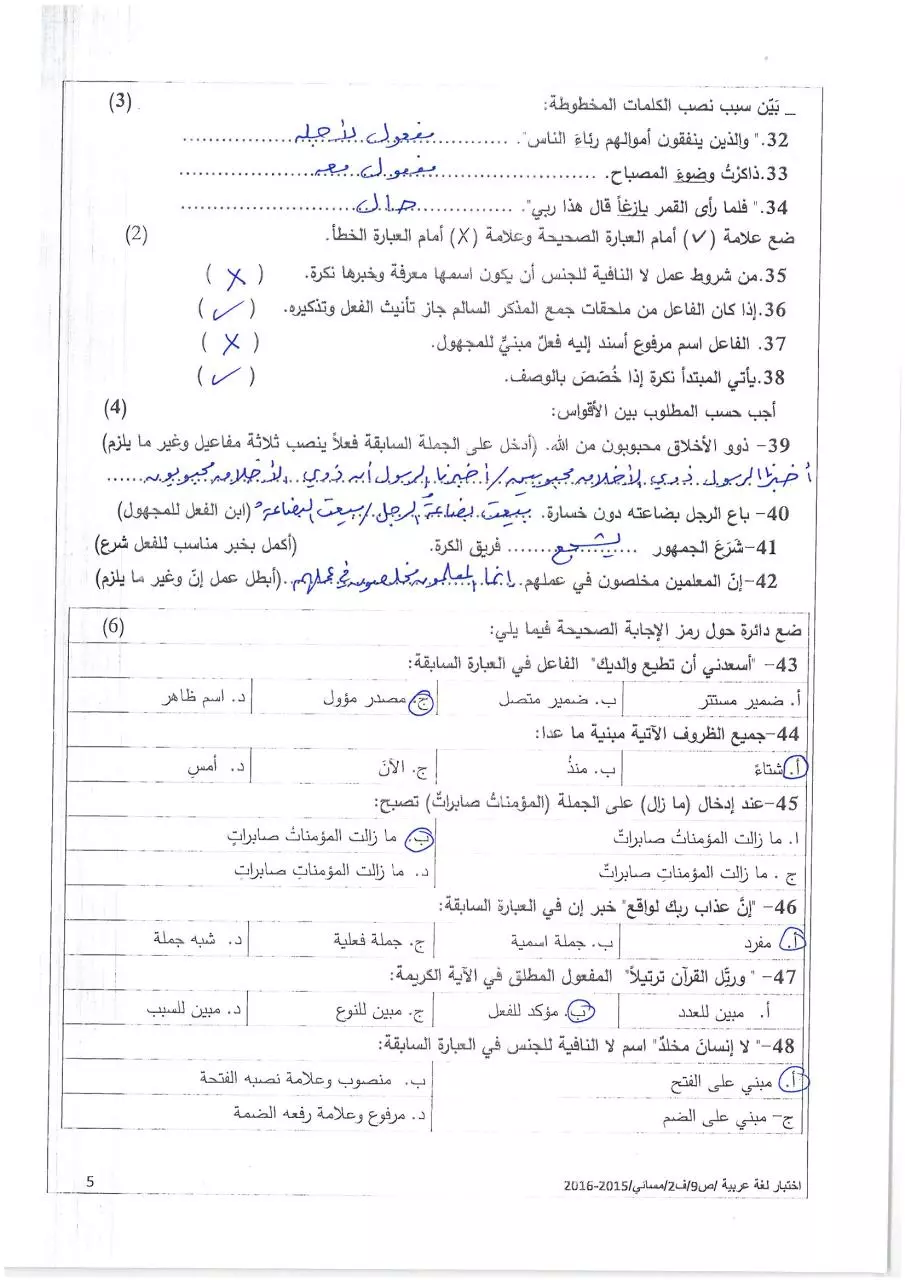 _ بَيّن سبب نصب الكلمات المخطوطة: (3)
32." والذين ينفقون أموالهم رئاءَ الناس". مفعول لأجله
33.ذاكرْتُ وضوءَ المصباح. مفعول معه
34." فلما رأى القمر بازغاً قال هذا ربي". حال
ضع علامة (✓) أمام العبارة الصحيحة وعلامة (X) أمام العبارة الخطأ. (2)
35.من شروط عمل لا النافية للجنس أن يكون اسمها معرفة وخبرها نكرة. ( X )
36.إذا كان الفاعل من ملحقات جمع المذكر السالم جاز تأنيث الفعل وتذكيره. ( ✓ )
37. الفاعل اسم مرفوع أسند إليه فعلٌ مبنيٌّ للمجهول. ( X )
38.يأتي المبتدأ نكرة إذا خُصّصَ بالوصف. ( ✓ )
أجب حسب المطلوب بين الأقواس: (4)
39- ذوو الأخلاق محبوبون من الله. (أدخل على الجملة السابقة فعلاً ينصب ثلاثة مفاعيل وغير ما يلزم)
أخبرنا الرسول ذوي الأخلاق محبوبين / أخبرنا الرسول أن ذوي الأخلاق محبوبون
40- باع الرجل بضاعته دون خسارة. بيعت بضاعةُ الرجل / بيعت البضاعةُ (ابن الفعل للمجهول)
41-شَرَعَ الجمهور ....... يشجع ....... فريق الكرة. (أكمل بخبر مناسب للفعل شرع)
42-إنّ المعلمين مخلصون في عملهم. إنما المعلمون مخلصون في عملهم (أبطل عمل إنّ وغير ما يلزم)
ضع دائرة حول رمز الإجابة الصحيحة فيما يلي: (6)
43- "أسعدني أن تطيع والديك" الفاعل في العبارة السابقة:
أ. ضمير مستتر ب. ضمير متصل ج. مصدر مؤول د. اسم ظاهر
44-جميع الظروف الآتية مبنية ما عدا:
أ. شتاءً ب. منذُ ج. الآنَ د. أمسِ
45-عند إدخال (ما زال) على الجملة (المؤمناتُ صابراتٌ) تصبح:
ا. ما زالت المؤمناتُ صابراتٌ ب. ما زالت المؤمناتُ صابراتٍ
ج . ما زالت المؤمناتِ صابراتٌ د. ما زالت المؤمناتِ صابراتٍ
46- "إنَّ عذاب ربك لواقع" خبر إن في العبارة السابقة:
أ. مفرد ب. جملة اسمية ج. جملة فعلية د. شبه جملة
47- " ورتّل القرآن ترتيلاً" المفعول المطلق في الآية الكريمة:
أ. مبين للعدد ب. مؤكد للفعل ج. مبين للنوع د. مبين للسبب
48-" لا إنسانَ مخلدٌ" اسم لا النافية للجنس في العبارة السابقة:
أ. مبني على الفتح ب. منصوب وعلامة نصبه الفتحة
ج- مبني على الضم د. مرفوع وعلامة رفعه الضمة
اختبار لغة عربية /ص9/ف2/مسائي/2015-2016 5